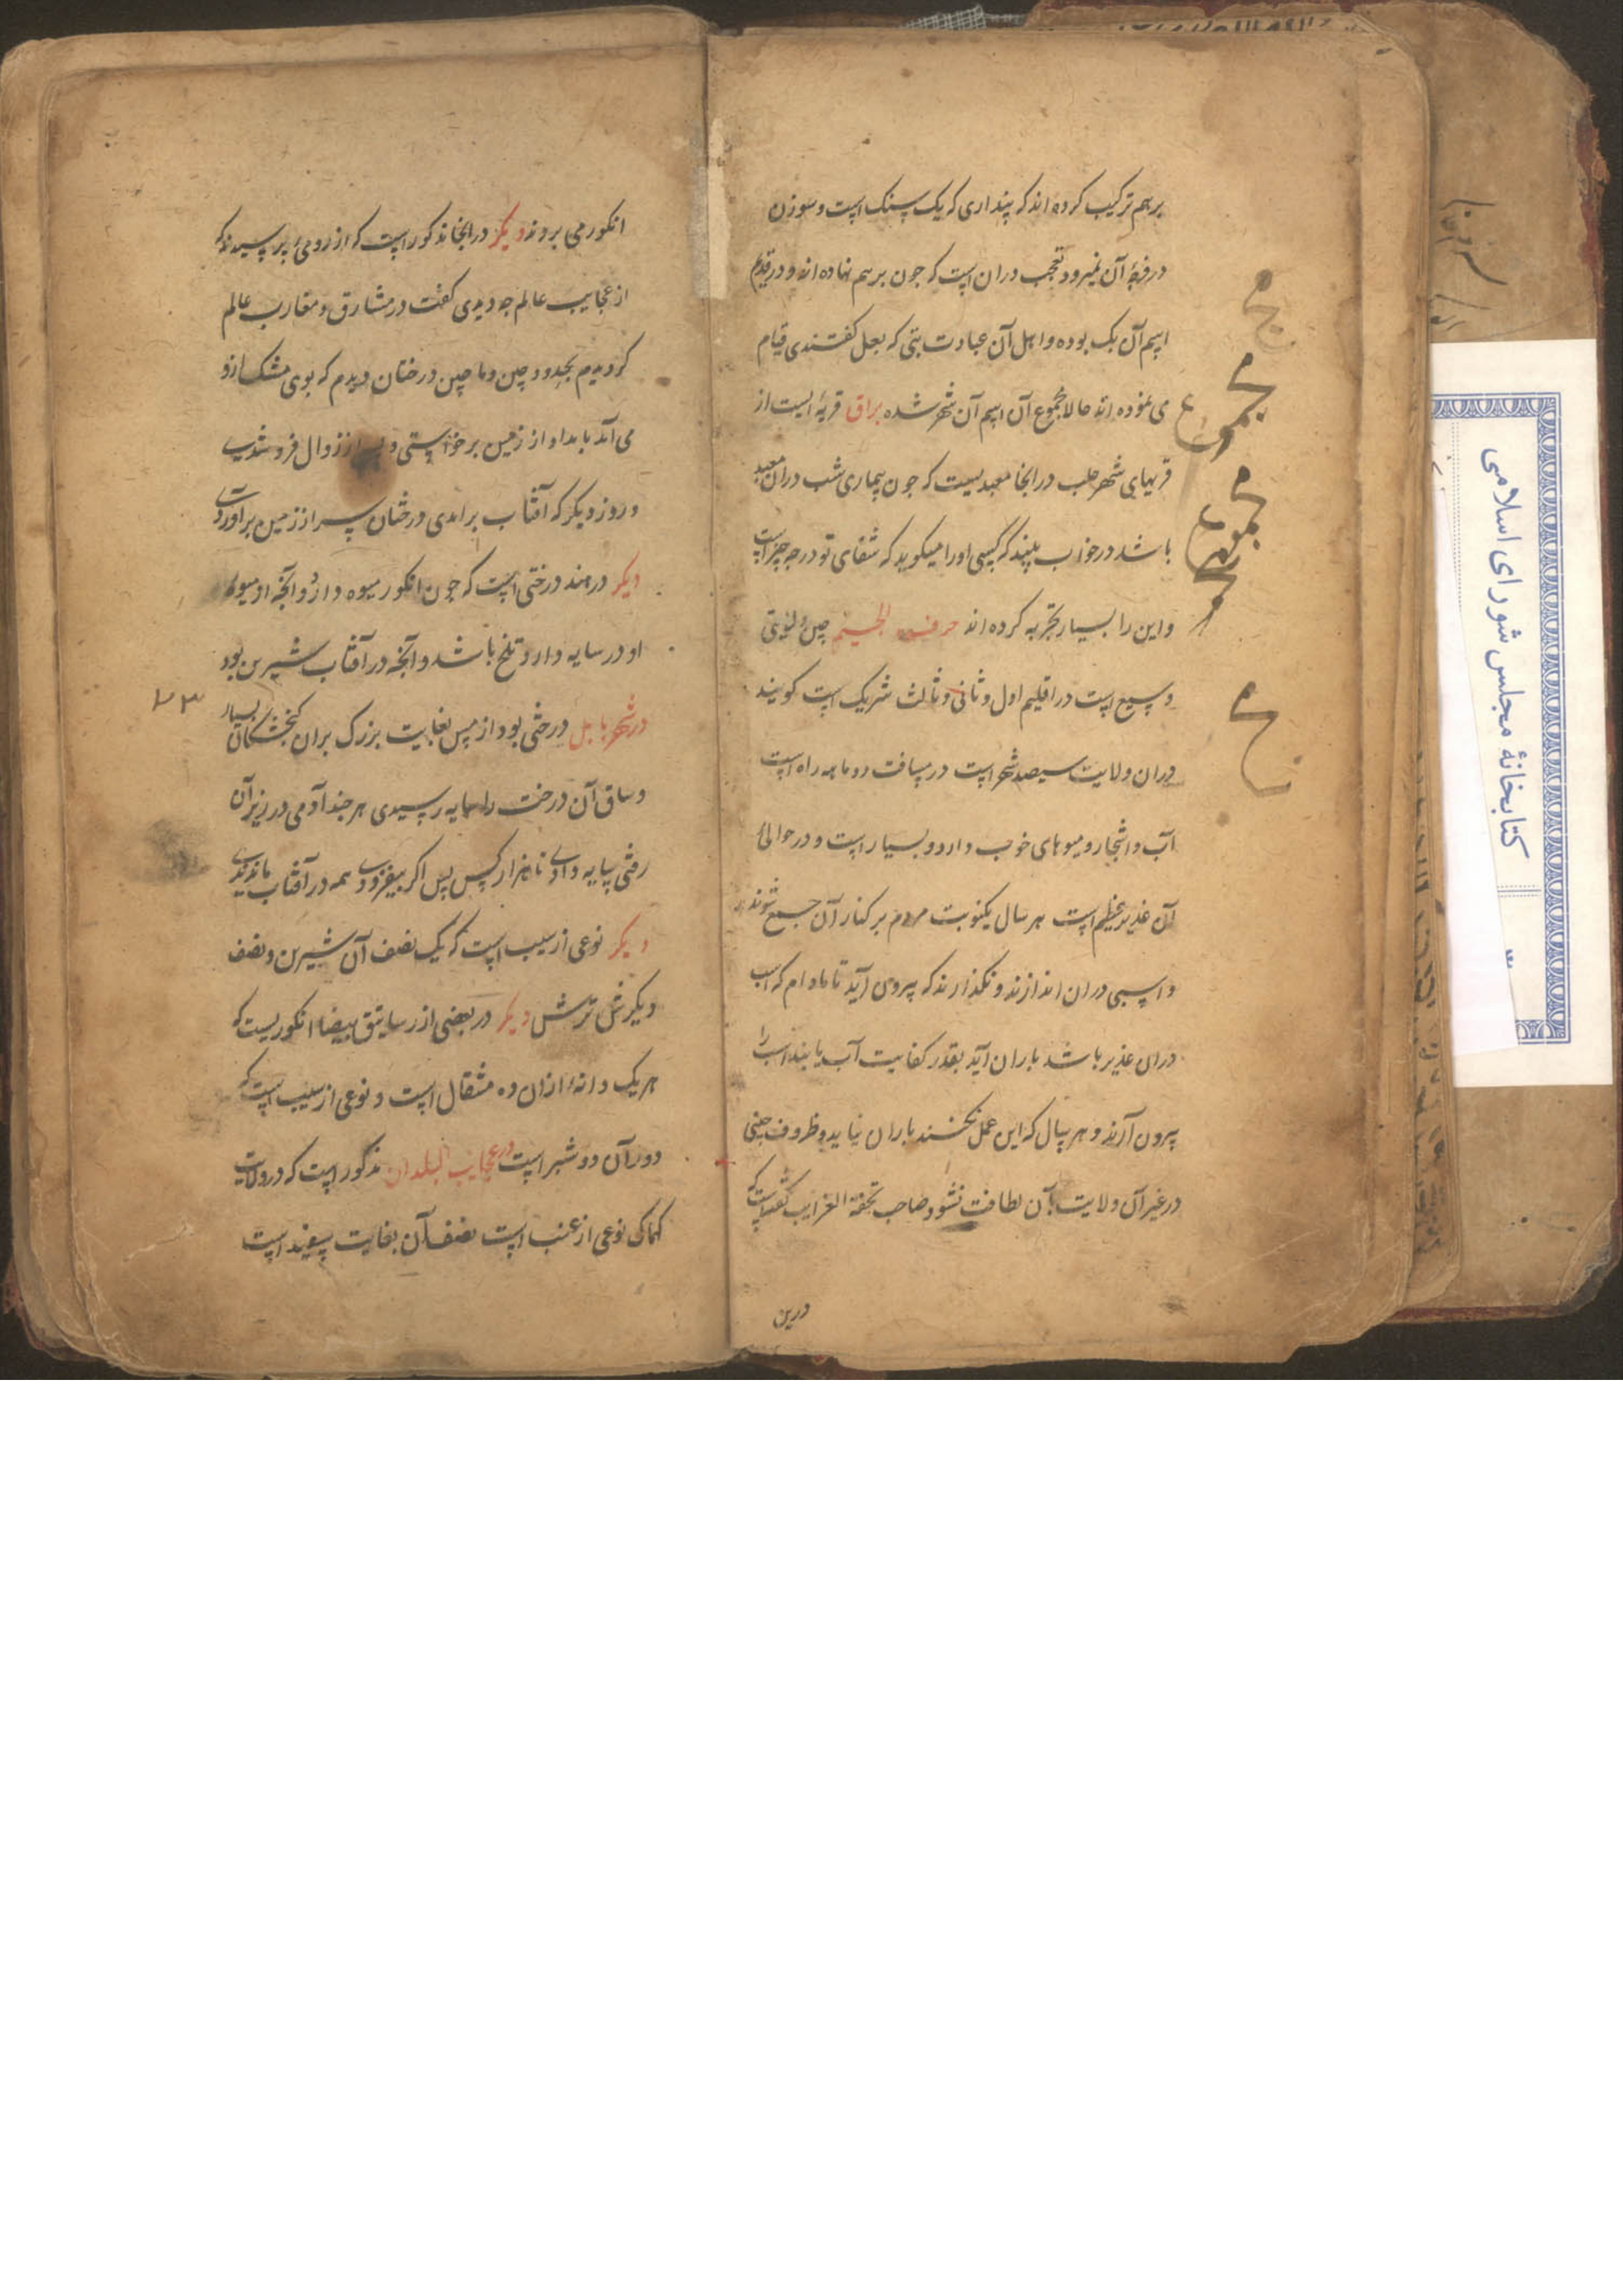 برهم ترکیب کرده اند که پنداری که یک سنک است و سوزن
در فرجهٔ آن نمیرود تعجب دران است که جون برهم نهاده اند و در قدیم
اسم آن بک بوده و اهل آن عبادت بتی که بعل کفتندی قیام
می نموده اند حالا مجموع آن اسم آن شهر شده براق قریهٔ ایست از
قریهای شهر حلب در انجا معبدیست که جون بیماری شب دران معبد
باشد در خواب بیند که کسی او را میکوید که شفای تو در چه چیز است
و این را بسیار تجربه کرده اند حرف الجیم چین ولایتی
وسیع است در اقلیم اول و ثانی و ثالث شریک است کویند
دران ولایت سیصد شهر است در مسافت دو ماهه راه است
آب و اشجار و میوهای خوب دارد و بسیار است و در حوالی
آن غدیر عظیم است هر سال یکنوبت مردم بر کنار آن جمع شوند
و اسبی دران اندازند و نکذارند که بیرون آید تا مادام که اسب
دران غدیر باشد باران آید بقدر کفایت آب یابند اسب را
بیرون آرند و هر سال که این عمل نکنند باران نیاید و ظروف چینی
در غیر آن ولایت بآن لطافت نشود صاحب تحفة الغرایب کفته است که
درین
انکور می بروند دیکر در انجا مذکور است که از رومی پرسیدند که
از عجایب عالم چه دیدی کفت در مشارق و مغارب عالم
کردیدم بحدود چین و ماچین درختان دیدم که بوی مشک ازو
می آمد بامداد از زمین برخواستی و بعد از زوال فرو شدی
و روز دیکر که آفتاب برامدی درختان سر از زمین براوردی
دیکر در هند درختی است که جون انکور میوه دارد و آنچه او میوه
او در سایه دارد تلخ باشد و آنچه در آفتاب شیرین بود
در شهر بابل درختی بود از مس بغایت بزرک بران کنجشکان بسیار
و ساق آن درخت را سایه رسیدی هر چند آدمی در زیر آن
رفتی سایه دادی تا هزار کس پس اکر بیفزودی همه در آفتاب ماندندی
دیکر نوعی از سیب است که یک نصف آن شیرین و نصف
دیکرش ترش دیکر در بعضی از رساتیق بیضا انکوریست که
هر یک دانه ازان ده مثقال است و نوعی از سیب است که
دور آن دو شبر است در عجایب البلدان مذکور است که در ولایت
کماک نوعی از عنب است نصف آن بغایت سفید است
کتابخانهٔ مجلس شورای اسلامی